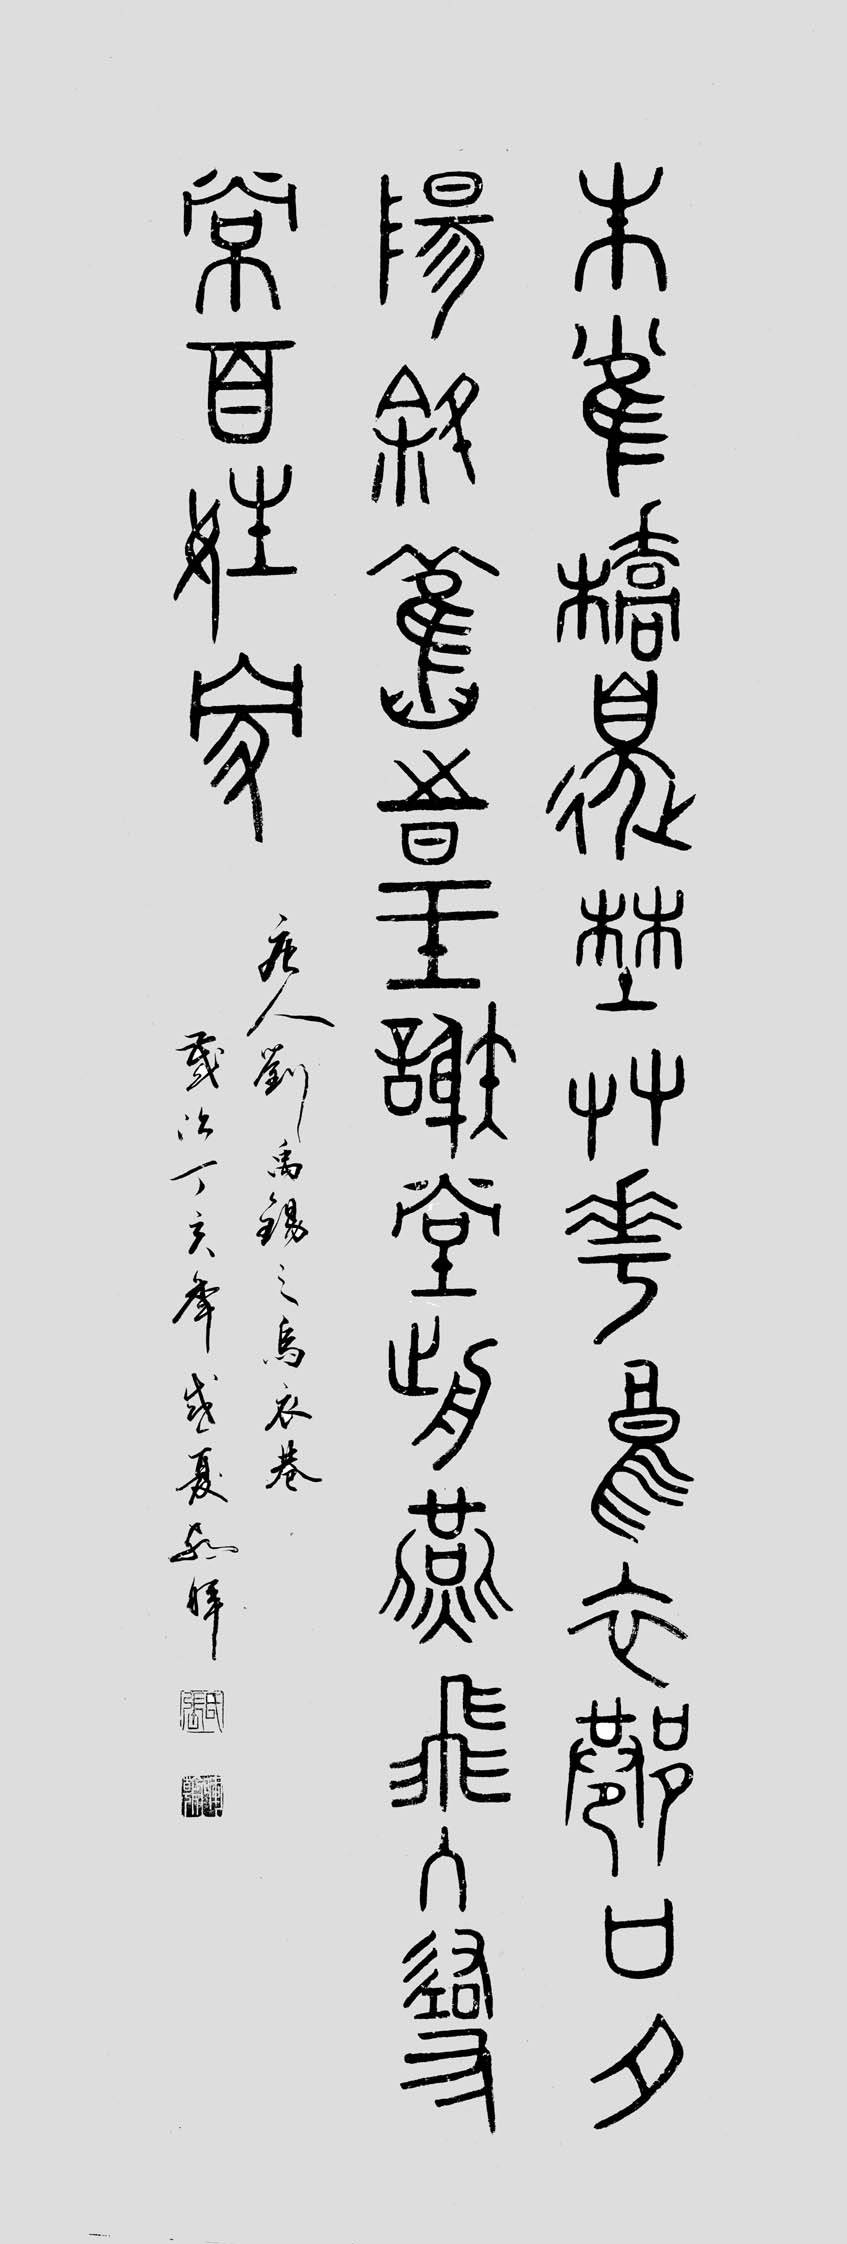 朱雀橋邊野草花烏衣巷口夕
陽斜舊時王謝堂前燕飛入尋
常百姓家
唐人劉禹錫之烏衣巷
歲次丁亥年盛夏暉